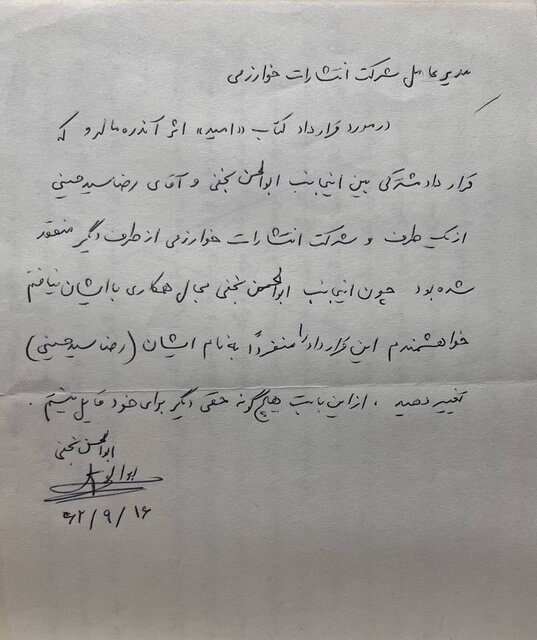 مدیر عامل شرکت انتشارات خوارزمی
در مورد قرارداد کتاب «امید» اثر آندره مالرو که
قرارداد مشترکی بین اینجانب ابوالحسن نجفی و آقای رضا سیدحسینی
از یک طرف و شرکت انتشارات خوارزمی از طرف دیگر منعقد
شده بود چون اینجانب ابوالحسن نجفی مجال همکاری با ایشان نیافتم
خواهشمندم این قرارداد را منفرداً به نام ایشان (رضا سیدحسینی)
تغییر دهید . از این بابت هیچ گونه حقی دیگر برای خود قایل نیستم .
ابوالحسن نجفی
۶۲/۹/۱۶